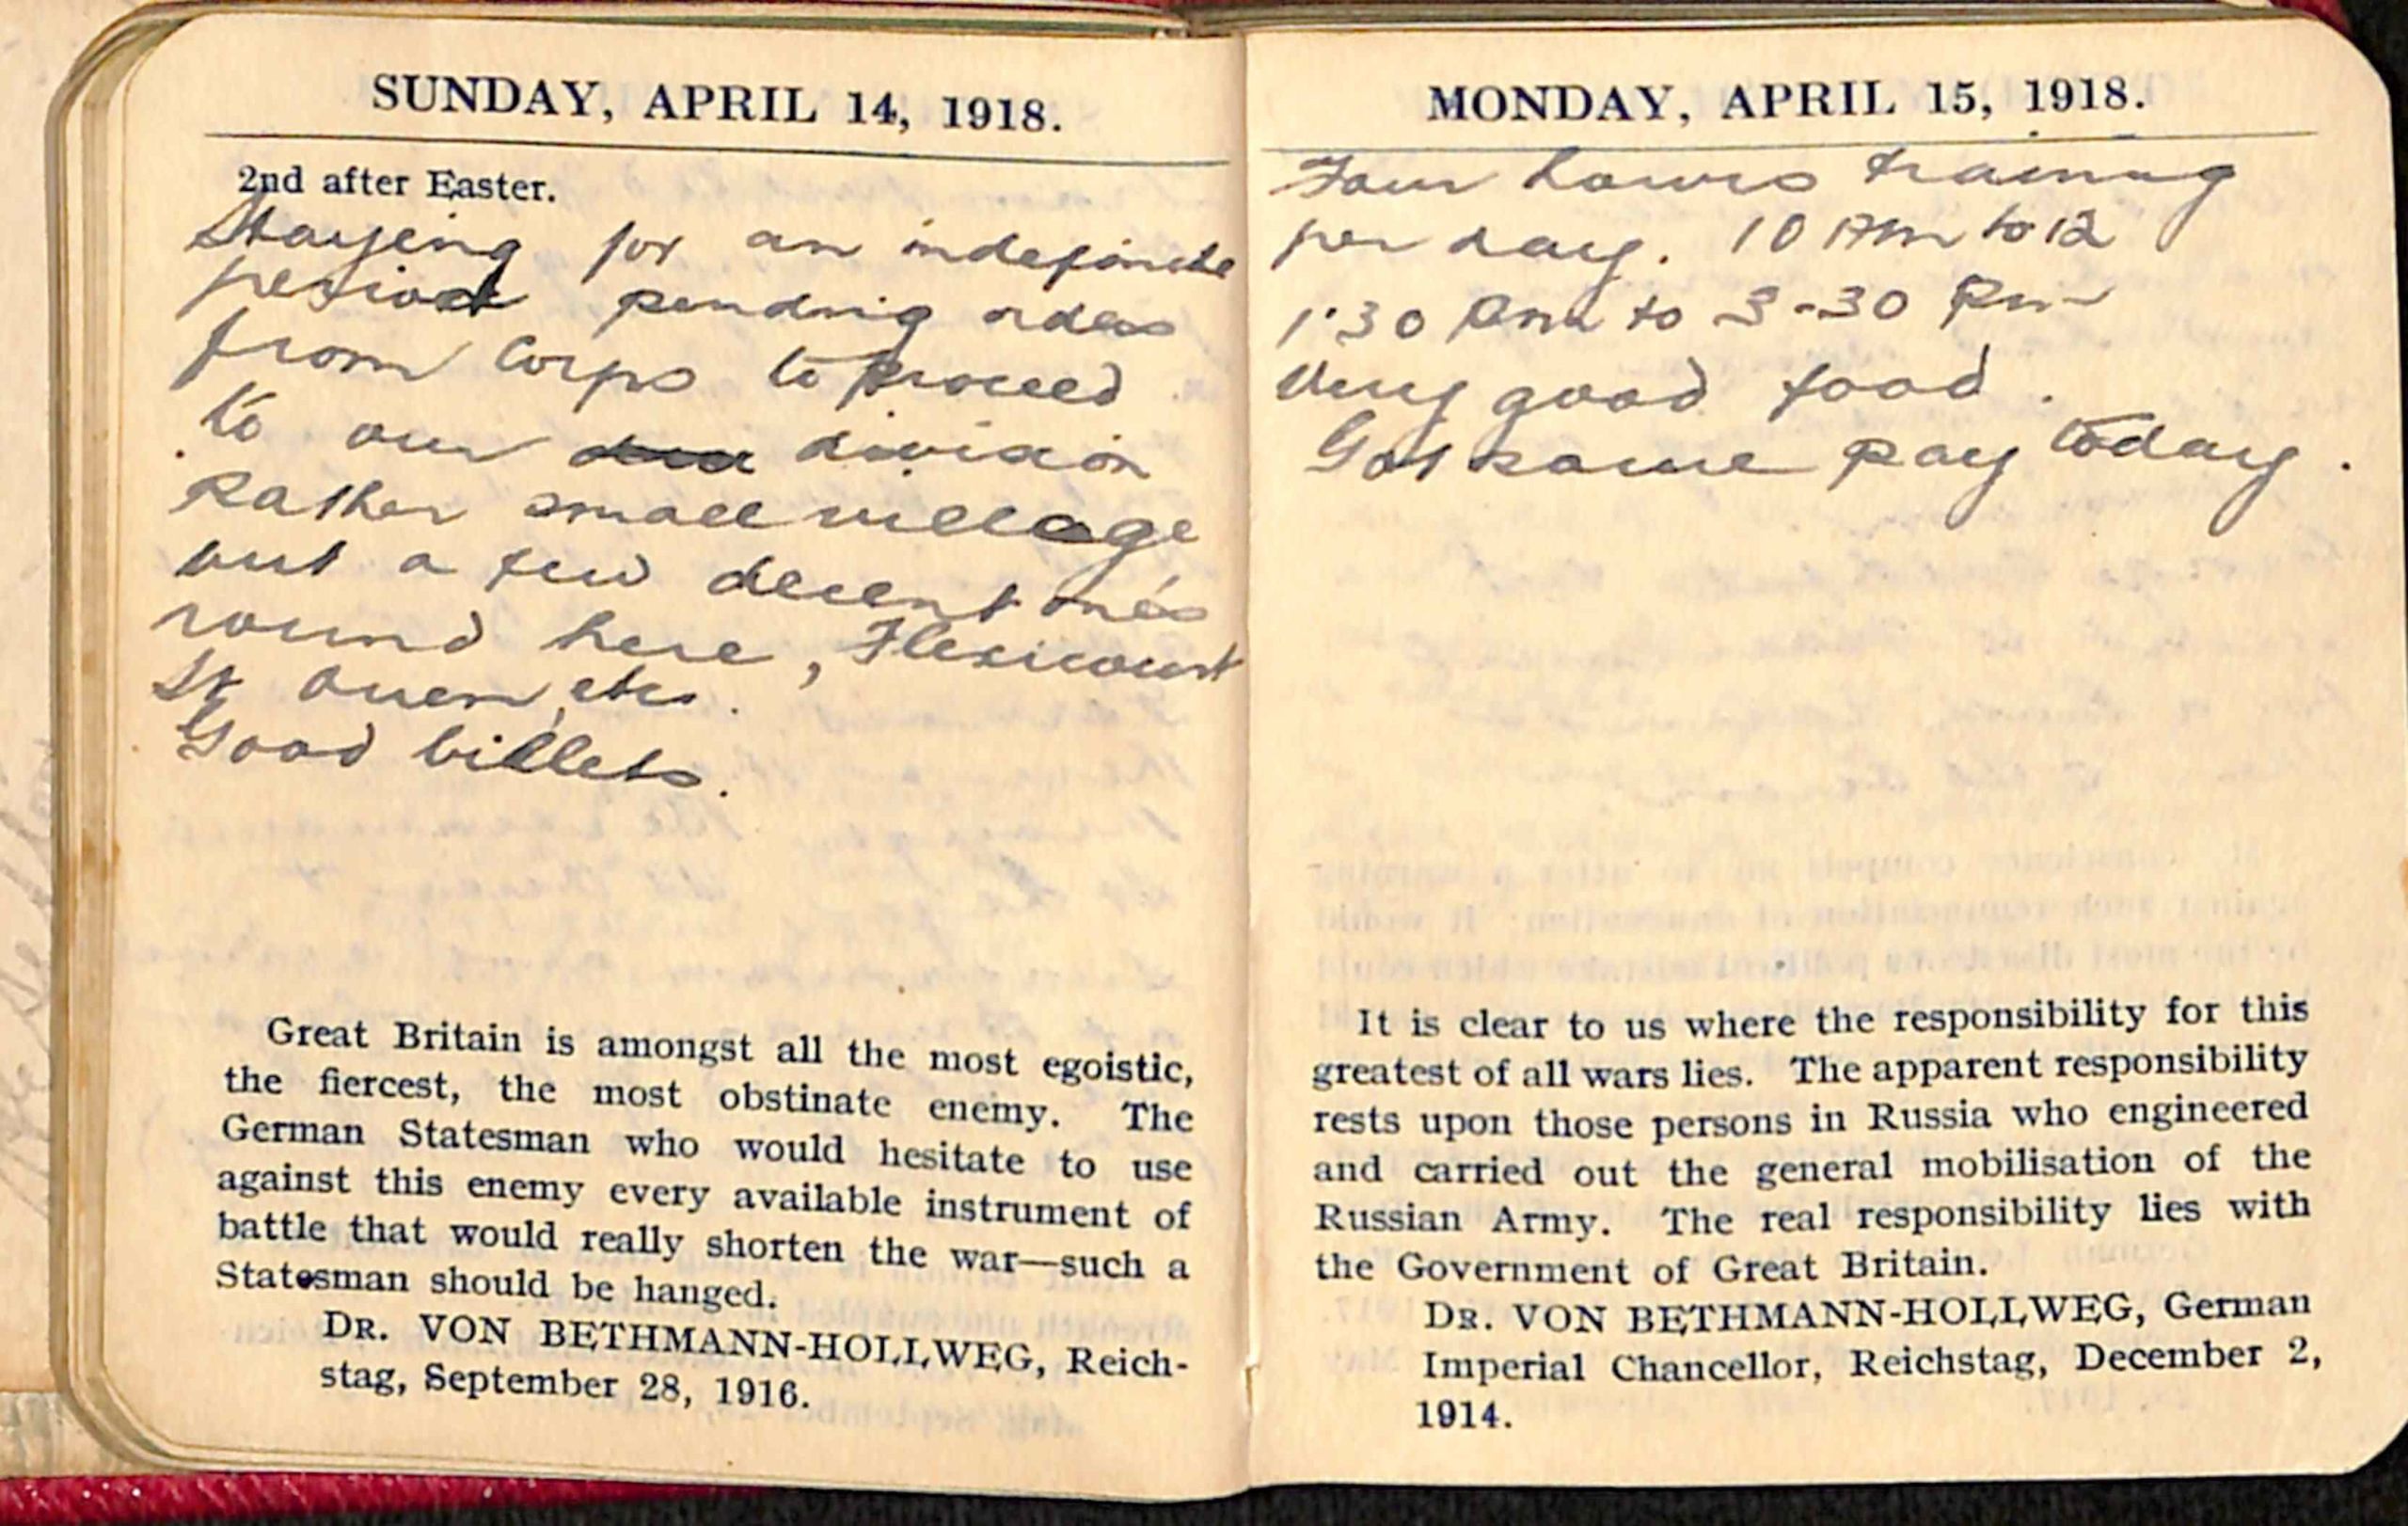 SUNDAY, APRIL 14, 1918.
2nd after Easter.
Staying for an indefinite
period pending orders
from Corps to proceed
to our division
Rather small village
but a few decent ones
round here, Flexicourt
St Ouen, etc.
Good billets.
Great Britain is amongst all the most egoistic,
the fiercest, the most obstinate enemy. The
German Statesman who would hesitate to use
against this enemy every available instrument of
battle that would really shorten the war—such a
Statesman should be hanged.
DR. VON BETHMANN-HOLLWEG, Reich-
stag, September 28, 1916.
MONDAY, APRIL 15, 1918.
Four hours training
per day. 10 AM to 12
1·30 PM to 3-30 PM
Very good food.
Got some pay today.
It is clear to us where the responsibility for this
greatest of all wars lies. The apparent responsibility
rests upon those persons in Russia who engineered
and carried out the general mobilisation of the
Russian Army. The real responsibility lies with
the Government of Great Britain.
DR. VON BETHMANN-HOLLWEG, German
Imperial Chancellor, Reichstag, December 2,
1914.